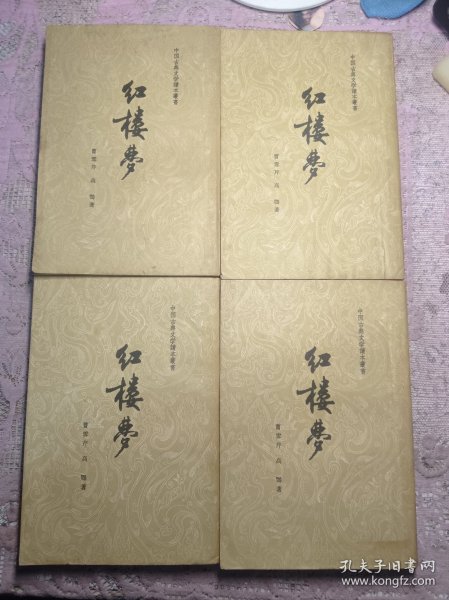 中国古典文学讀本叢書
红楼梦
曹雪芹 高鶚著
中国古典文学讀本叢書
红楼梦
曹雪芹 高鶚著
中国古典文学讀本叢書
红楼梦
曹雪芹 高鶚著
中国古典文学讀本叢書
红楼梦
曹雪芹 高鶚著
孔夫子旧书网
www.kongfz.com